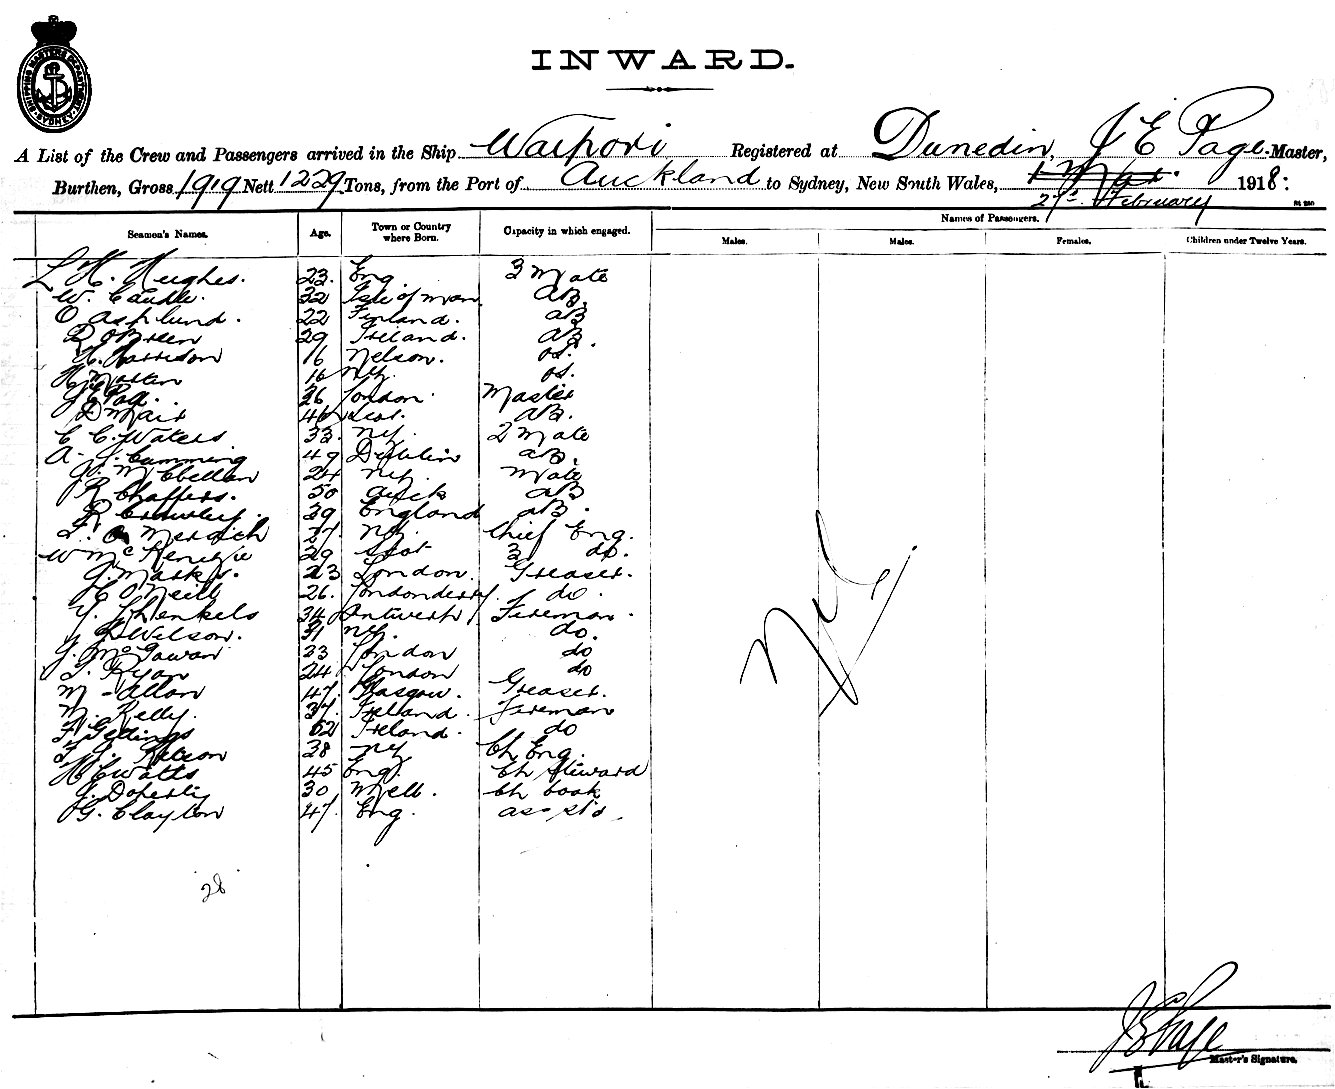 SHIPPING MASTERS DEPARTMENT SYDNEY
INWARD.
A List of the Crew and Passengers arrived in the Ship Waipori Registered at Dunedin, J E Page Master,
Burthen, Gross 1919 Nett 1229 Tons, from the Port of Auckland to Sydney, New South Wales, 1 Mar. 1918:
27th February
Names of Passengers.
Seamen's Names. Age. Town or Country where Born. Capacity in which engaged. Males. Males. Females. Children under Twelve Years.
L H. Hughes. 23. Eng. 3 Mate
W. Caudle. 32 Isle of Man AB.
O Asplund. 22 Finland. AB
D OBrien 29 Ireland. AB.
H. Harrison 16 Nelson. OS.
H. 16 NZ. OS.
J E Page. 36 London. Master
D Mair 46 Scot. AB.
C C. Waters 33. NZ. 2 Mate
A. J. Cumming 49 Dublin AB.
J. McClellan 24 NZ. Mate
R Chaffers. 50 Auck AB
R Crowley. 39 England AB.
Mersich 27. NZ. Chief Eng.
W McKenzie 29 Scot 3 do.
J. 23 London. Greaser.
C O'Neill 26. Londonderry. do.
Y. Shenkels 34 Antwerp Fireman.
J Wilson. 31 NZ. do.
J. McGowan 33 London do
J. Ryan 24 London do
M - Allan 47. Glasgow. Greaser.
M. Kelly. 37. Ireland. Fireman
52 Ireland. do
38 NZ Ch Eng.
H C Watts 45 Eng. Ch Steward
J. Doherty 30 Melb. Ch Cook
G. Clayton 47. Eng. Ass St'd.
Nil
28
J E Page
Master's Signature.